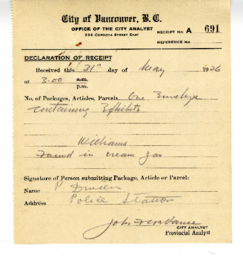 City of Vancouver, B.C.
OFFICE OF THE CITY ANALYST
RECEIPT No. A 691
REFERENCE No.
DECLARATION OF RECEIPT
Received this 21st day of May 1926
at 3:00 a.m.
p.m.
No. of Packages, Articles, Parcels One Envelope
containing Exhibits
Williams
Found in cream jar
Signature of Person submitting Package, Article or Parcel:
Name
Address Police Station
CITY ANALYST
Provincial Analyst